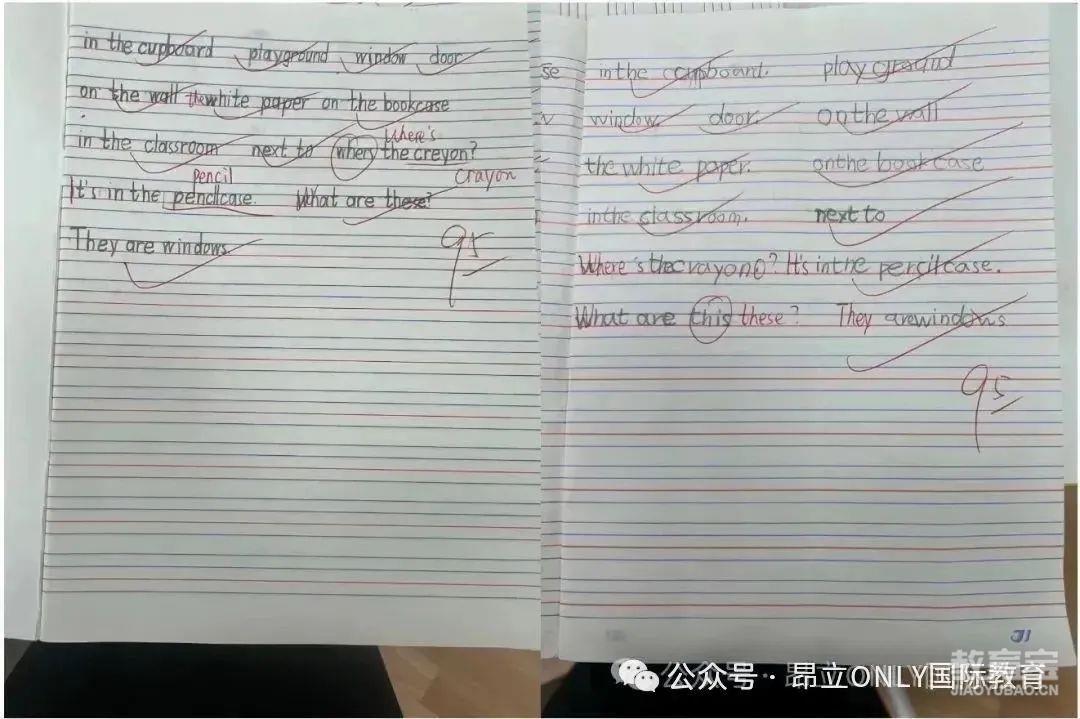 in the cupboard playground window door
on the wall the white paper on the bookcase
Where's
in the classroom next to whery the creyon?
pencil crayon
It's in the pencilcase. What are these?
They are windows.
95
se in the cupboard. playground
window. door. on the wall
the white paper. on the bookcase
in the classroom. next to
Where's the crayon? It's in the percilcase.
What are this these? They are windows
95
31
公众号·昂立ONLY国际教育
教育宝
JIAOYUBAO.CN